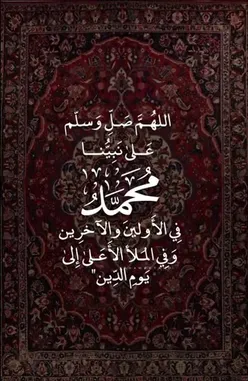 اللهُمَّ صَلِّ وَسلّم
عَلىٰ نَبِيُّنا
مُحَمَّدُ
فِي الأَولينَ والآخرِين
وَفِي المَلأ الأَعلىٰ إلىٰ
يَومِ الدِّين"